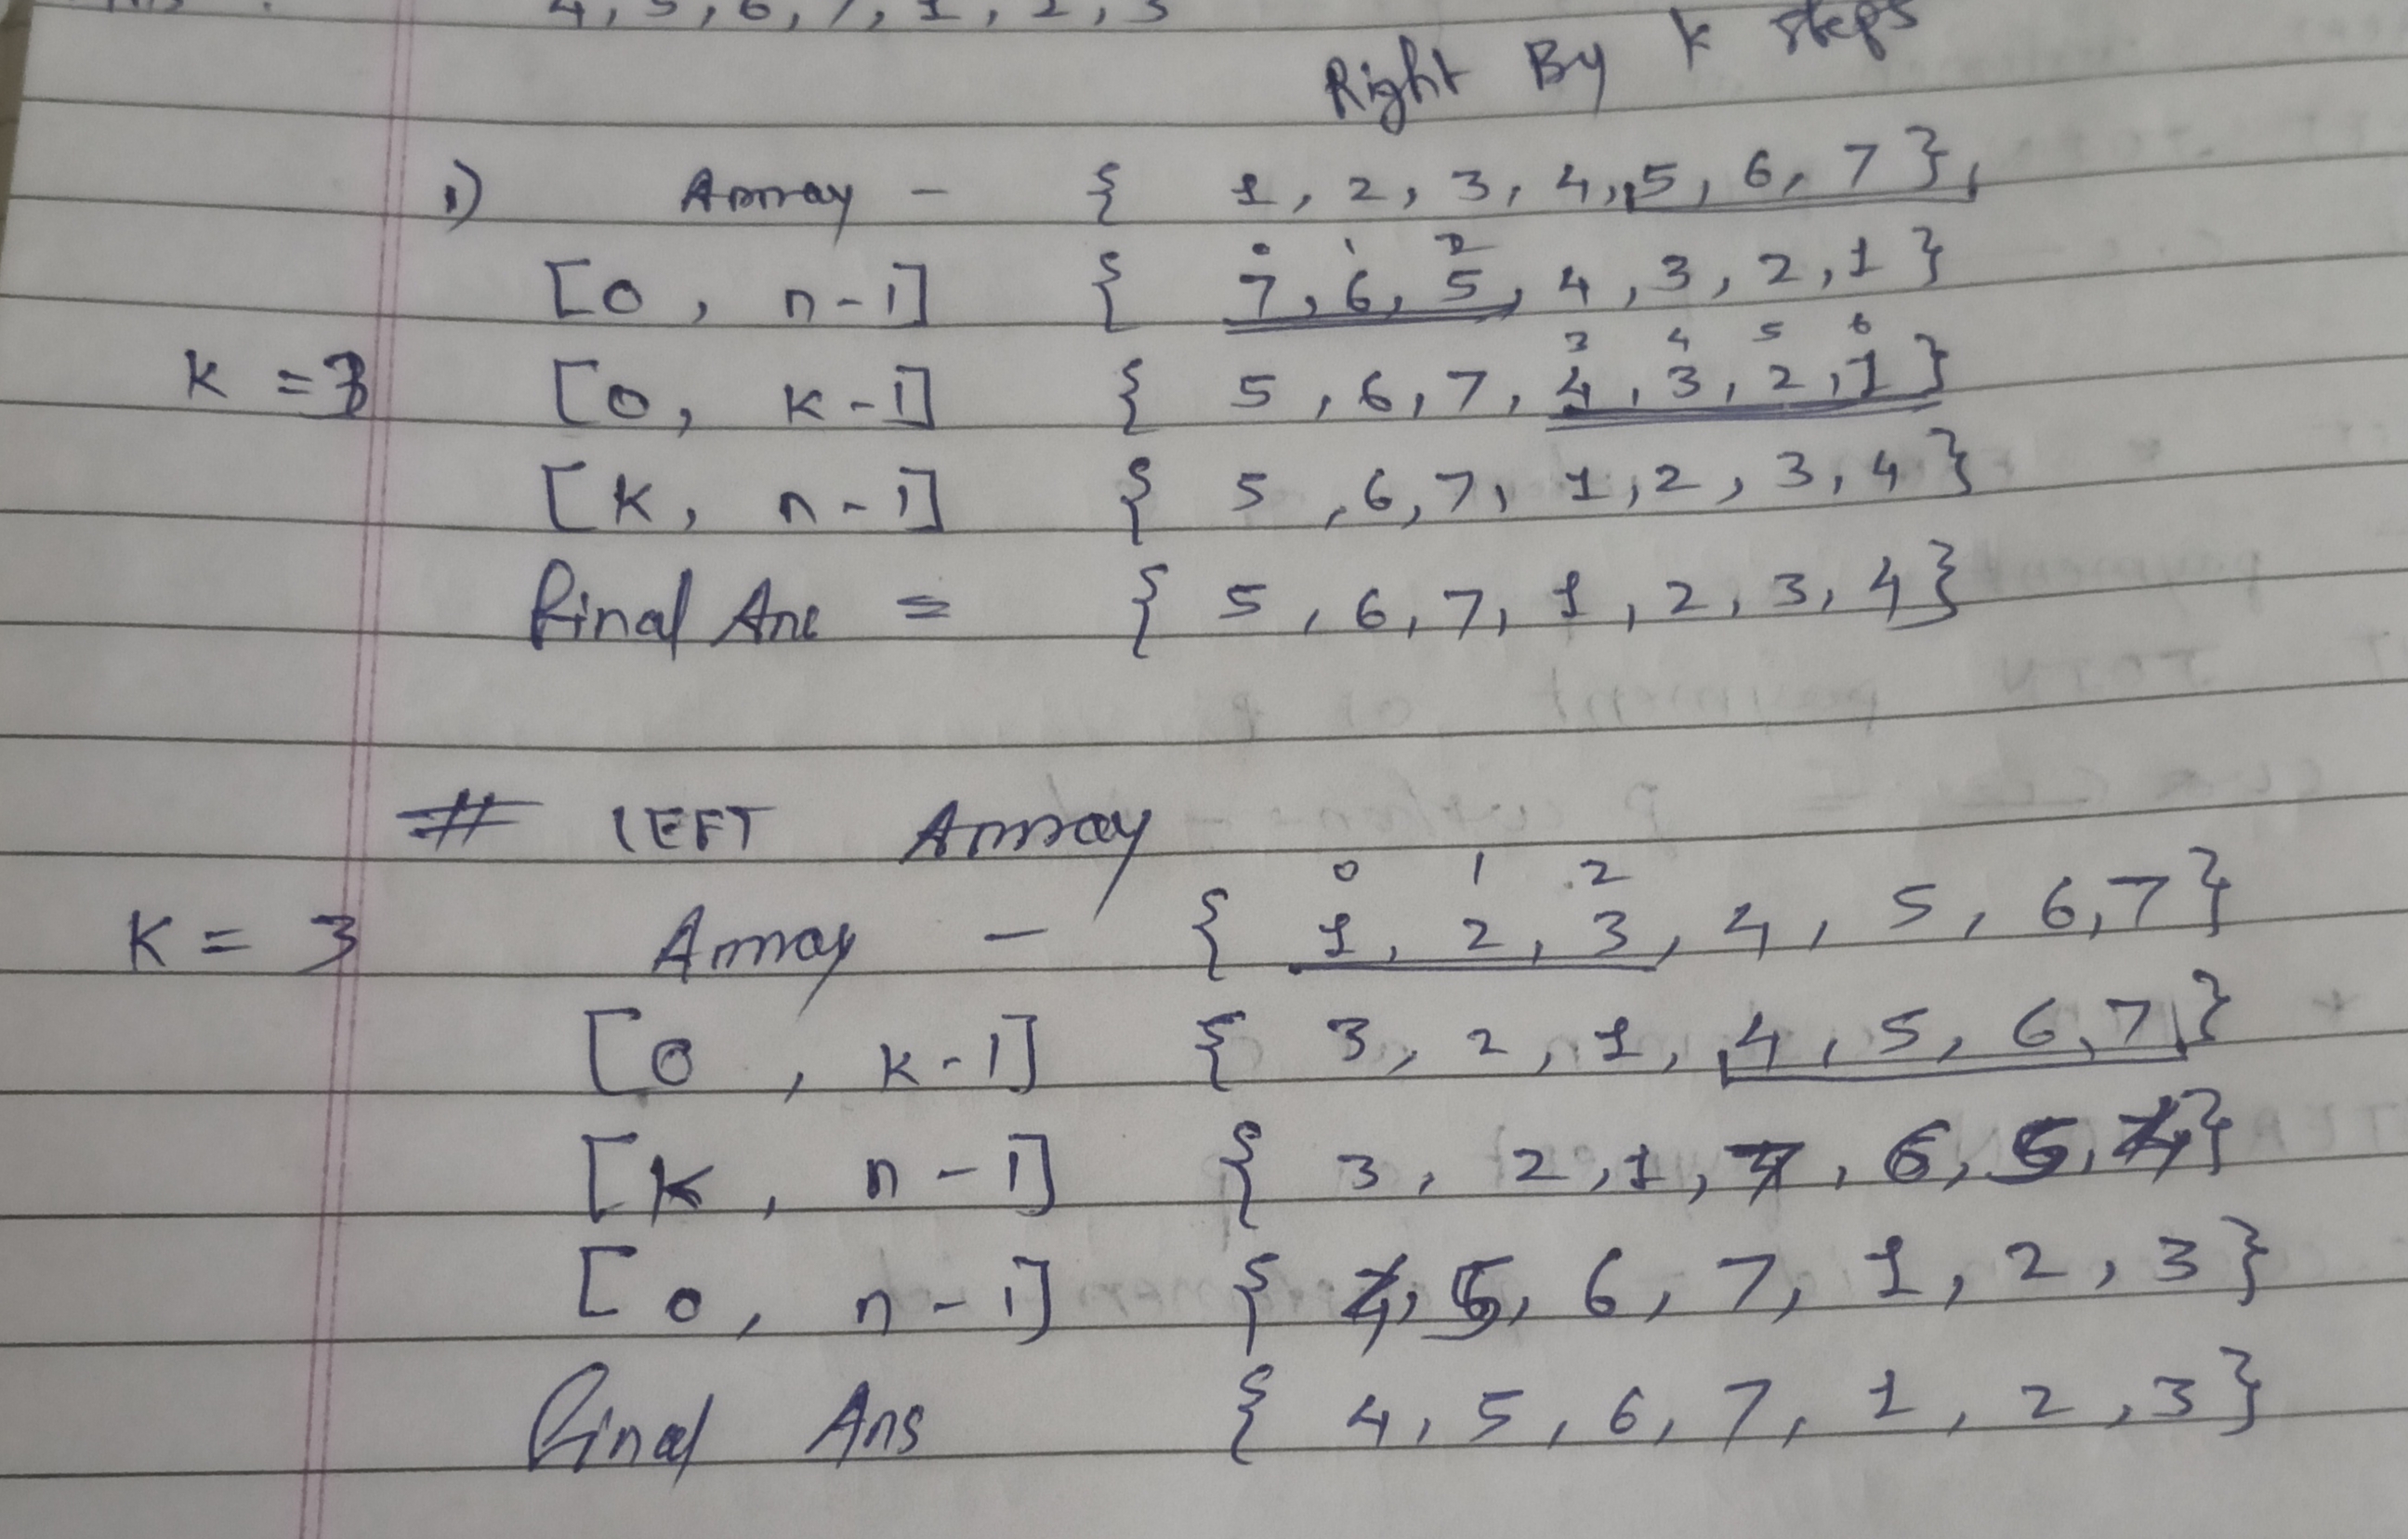 4, 5, 6, 7, 1, 2, 3
Right By k steps
1) Array - { 1, 2, 3, 4, 5, 6, 7 },
0 1 2
[0, n-1] { 7, 6, 5, 4, 3, 2, 1 }
3 4 5 6
K = 3 [0, K-1] { 5, 6, 7, 4, 3, 2, 1 }
[K, n-1] { 5, 6, 7, 1, 2, 3, 4 }
Final Ans = { 5, 6, 7, 1, 2, 3, 4 }
# LEFT Array
0 1 2
K = 3 Array - { 1, 2, 3, 4, 5, 6, 7 }
[0, K-1] { 3, 2, 1, 4, 5, 6, 7 }
[K, n-1] { 3, 2, 1, 7, 6, 5, 4 }
[0, n-1] { 4, 5, 6, 7, 1, 2, 3 }
Final Ans { 4, 5, 6, 7, 1, 2, 3 }